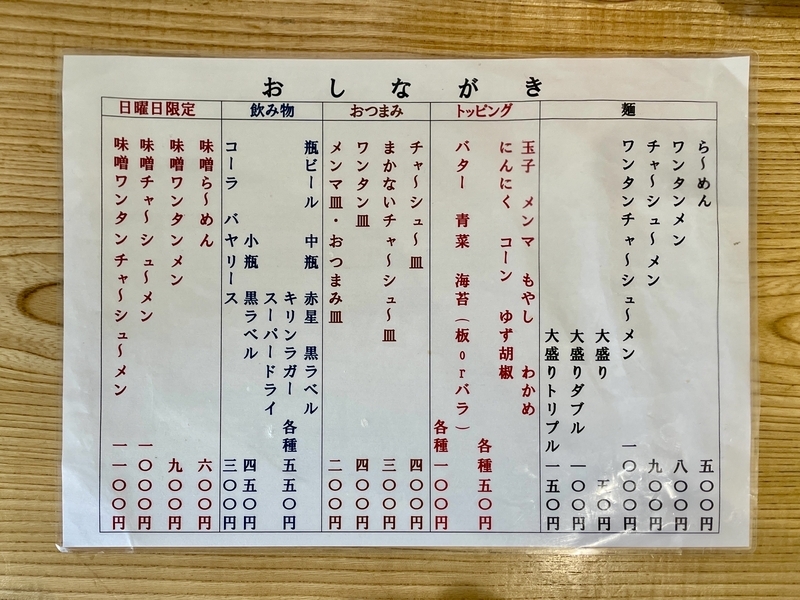 おしながき
麺
ら〜めん 五〇〇円
ワンタンメン 八〇〇円
チャ〜シュ〜メン 九〇〇円
ワンタンチャ〜シュ〜メン 一〇〇〇円
大盛り 五〇円
大盛りダブル 一〇〇円
大盛りトリプル 一五〇円
トッピング
玉子 メンマ もやし わかめ
にんにく コーン ゆず胡椒
各種五〇円
バター 青菜 海苔(板orバラ)
各種一〇〇円
おつまみ
チャ〜シュ〜皿 四〇〇円
まかないチャ〜シュ〜皿 三〇〇円
ワンタン皿 四〇〇円
メンマ皿・おつまみ皿 二〇〇円
飲み物
瓶ビール 中瓶 赤星 黒ラベル
キリンラガー 各種五五〇円
スーパードライ
小瓶 黒ラベル 四五〇円
コーラ バヤリース 三〇〇円
日曜日限定
味噌ら〜めん 六〇〇円
味噌ワンタンメン 九〇〇円
味噌チャ〜シュ〜メン 一〇〇〇円
味噌ワンタンチャ〜シュ〜メン 一一〇〇円